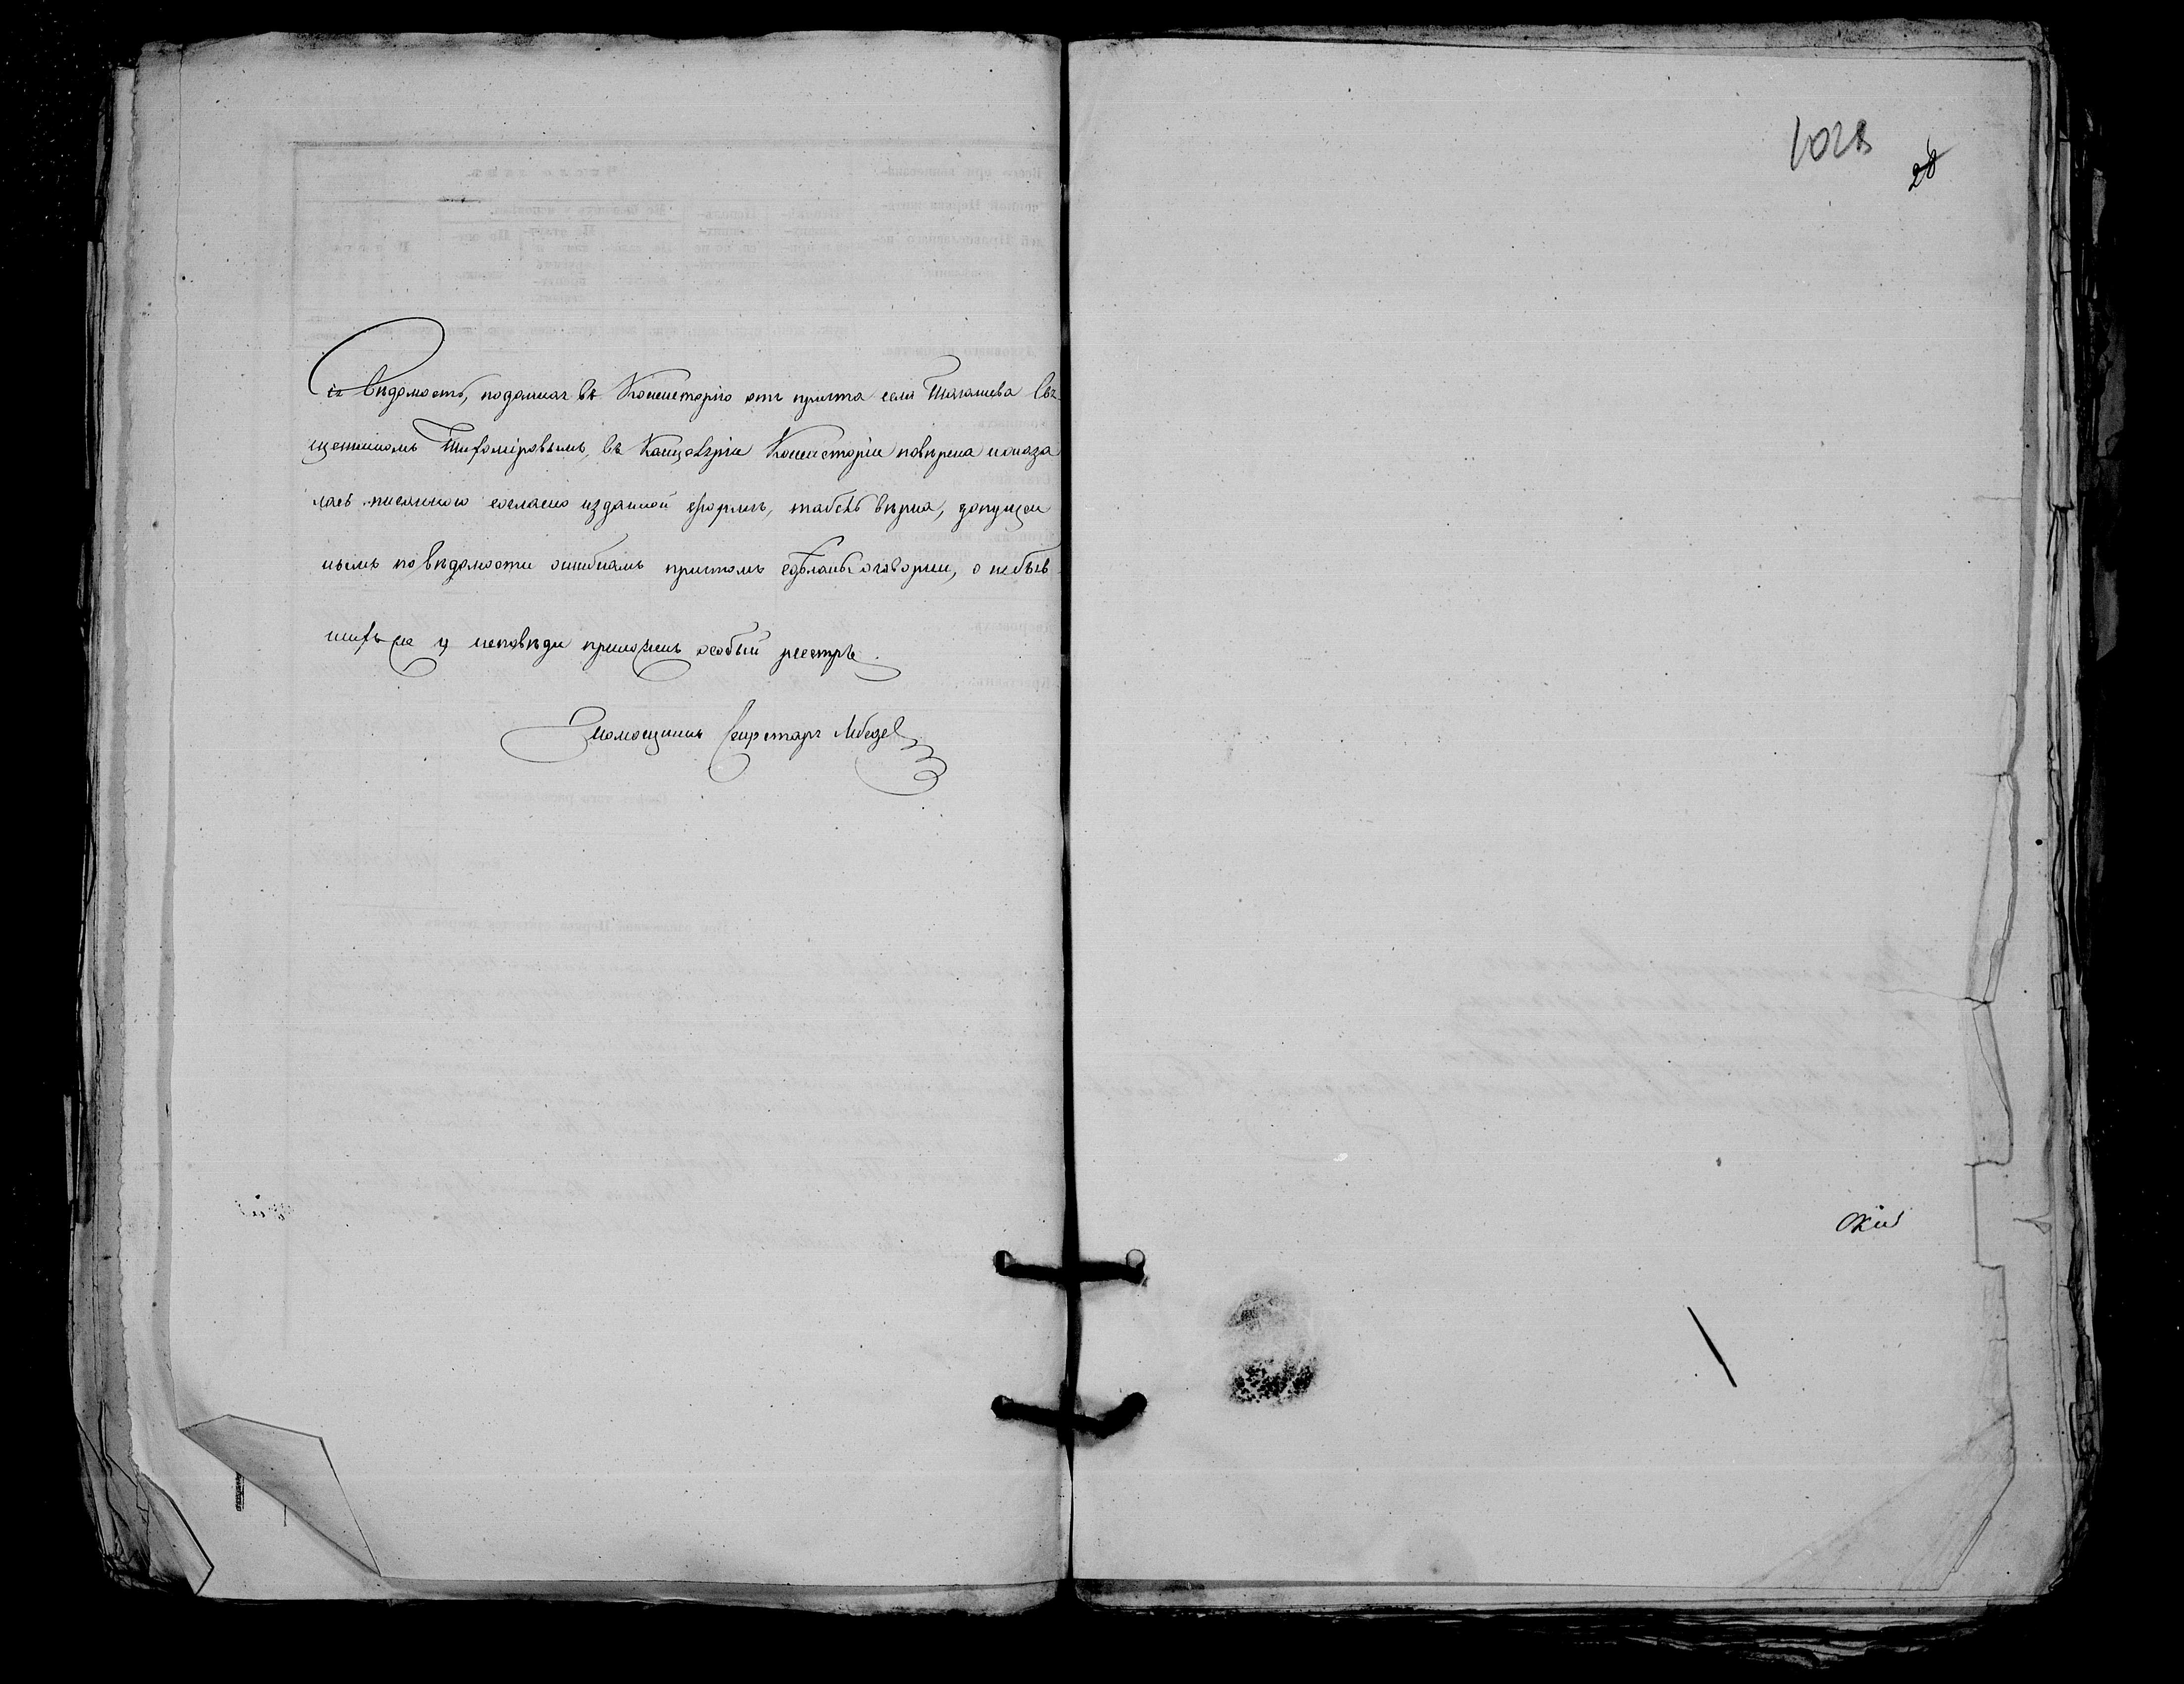 Сія вѣдомость, поданная въ Консисторію отъ причта села Шагашева Свя-
щенникомъ Тихоміровымъ, въ Канцеляріи Консисторіи повѣрена и оказа
лась писанною согласно изданной формѣ, табель вѣрна, допущен
нымъ по вѣдомости ошибкамъ причтомъ сдѣланы оговорки, о небыв
шихъ на исповѣди приложенъ особый реестръ.
Помощникъ Секретаря Лебедев
28